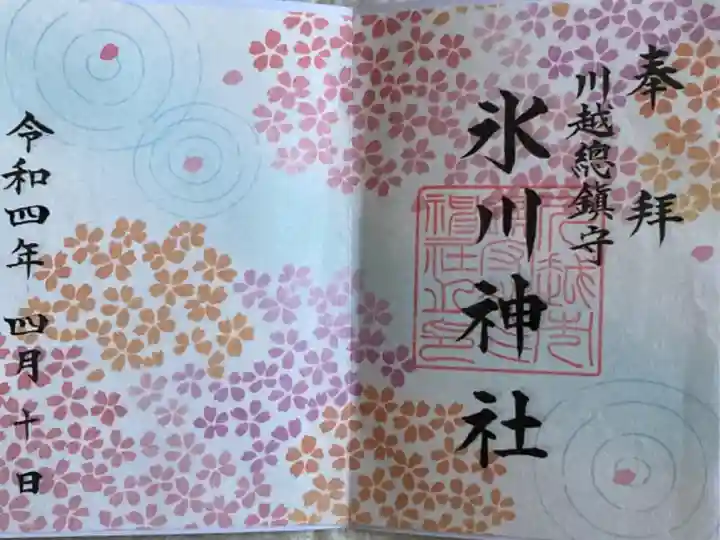 奉拝
川越總鎮守
氷川神社
令和四年 四月十日